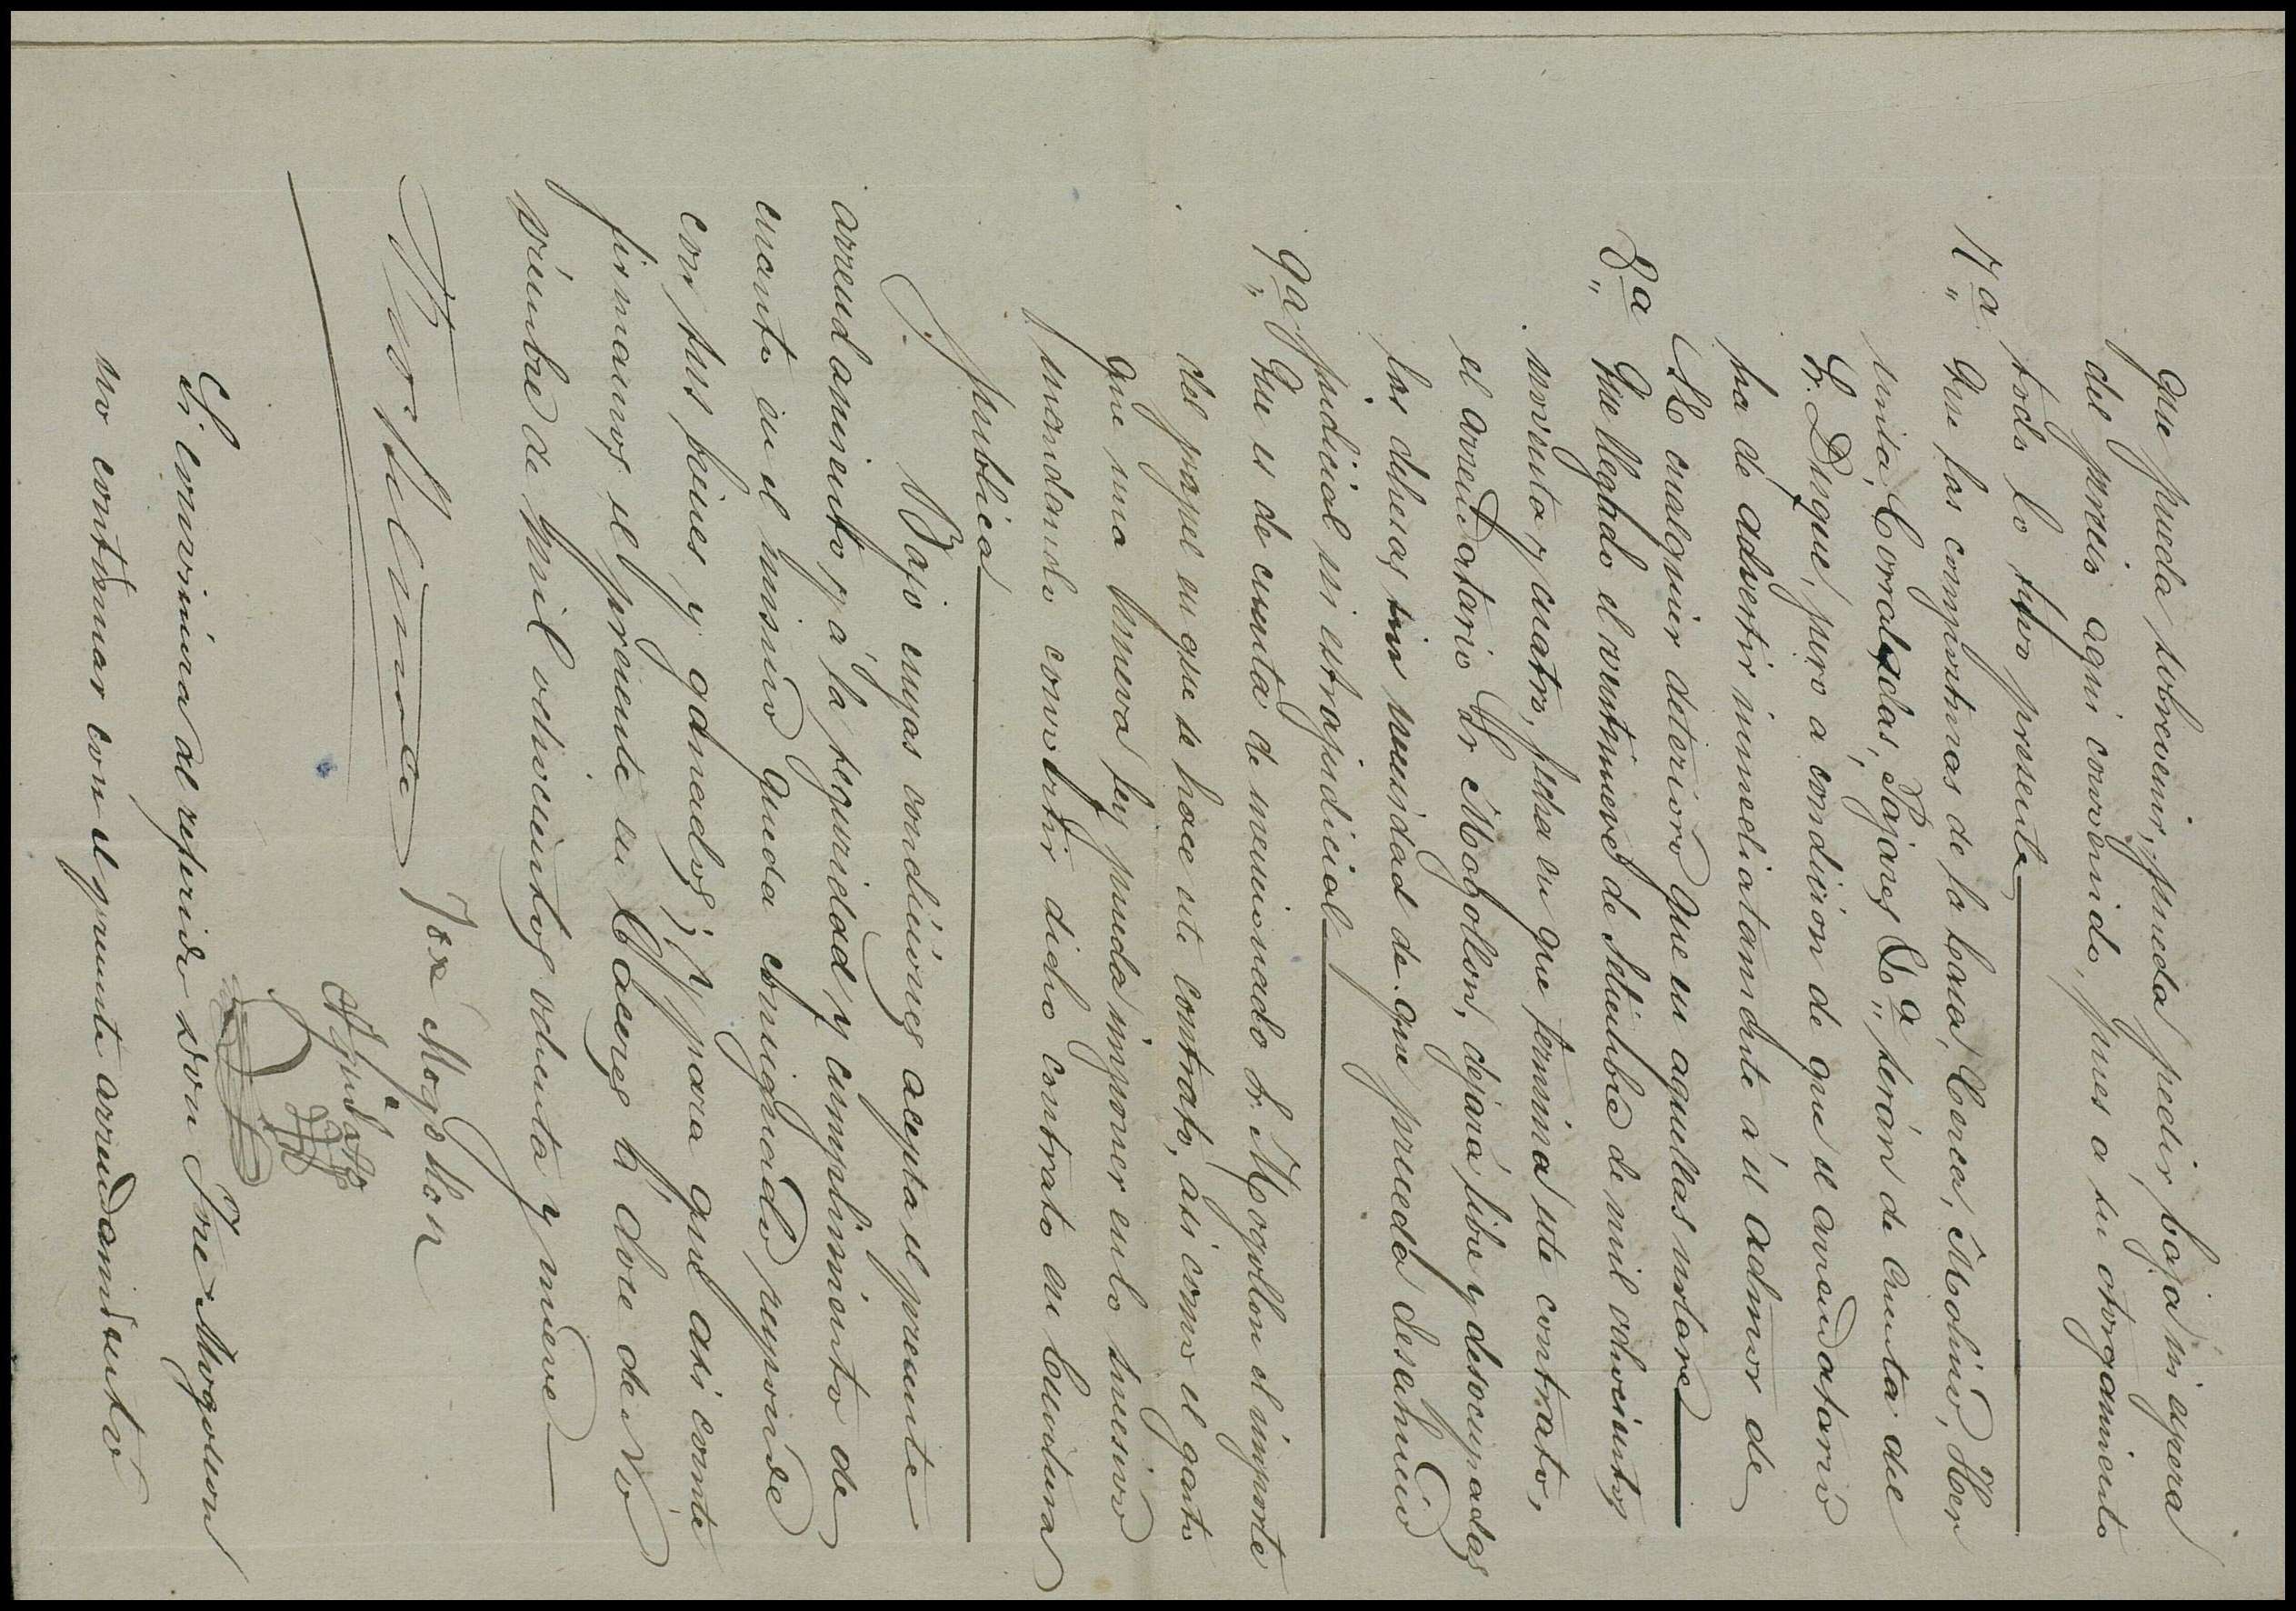 que pueda sobrevenir, pueda pedir baja ni espera
del precio aqui convenido, pues a su otorgamiento
todo lo tuvo presente
7ª Que las composturas de la casa, Cerca, Molino, Her
renia, Corraladas, Pajares Eª, serán de cuenta del
Sr. Duque, pero a condicion de que el arrendatario
ha de advertir inmediatamente á el admor de
SE cualquier deterioro que en aquellas notare
8ª Que llegado el veintinueve de Setiembre de mil ochocientos
noventa y cuatro, fecha en que termina este contrato,
el arrendatario Sr Mogollon, dejará libre y desocupadas
las dehesas sin necesidad de que preceda desahucio
judicial ni estrajudicial
9ª Que es de cuenta de mencionado Sr. Mogollon el importe
del papel en que se hace este contrato, asi como el gasto
que una nueva ley pueda imponer en lo sucesivo
mandando convertir dicho contrato en Escritura
publica
Bajo cuyas condiciones acepta el presente
arrendamiento, y á la seguridad y cumplimiento de
cuanto en el mismo queda consignado, responde
con sus bienes y ganados; y para que asi conste
firmamos el presente en Cáceres á doce de No
viembre de mil ochocientos ochenta y nueve
Jose Mogollon
Si conviniera al referido don Jose Mogollon
no continuar con el presente arrendamiento